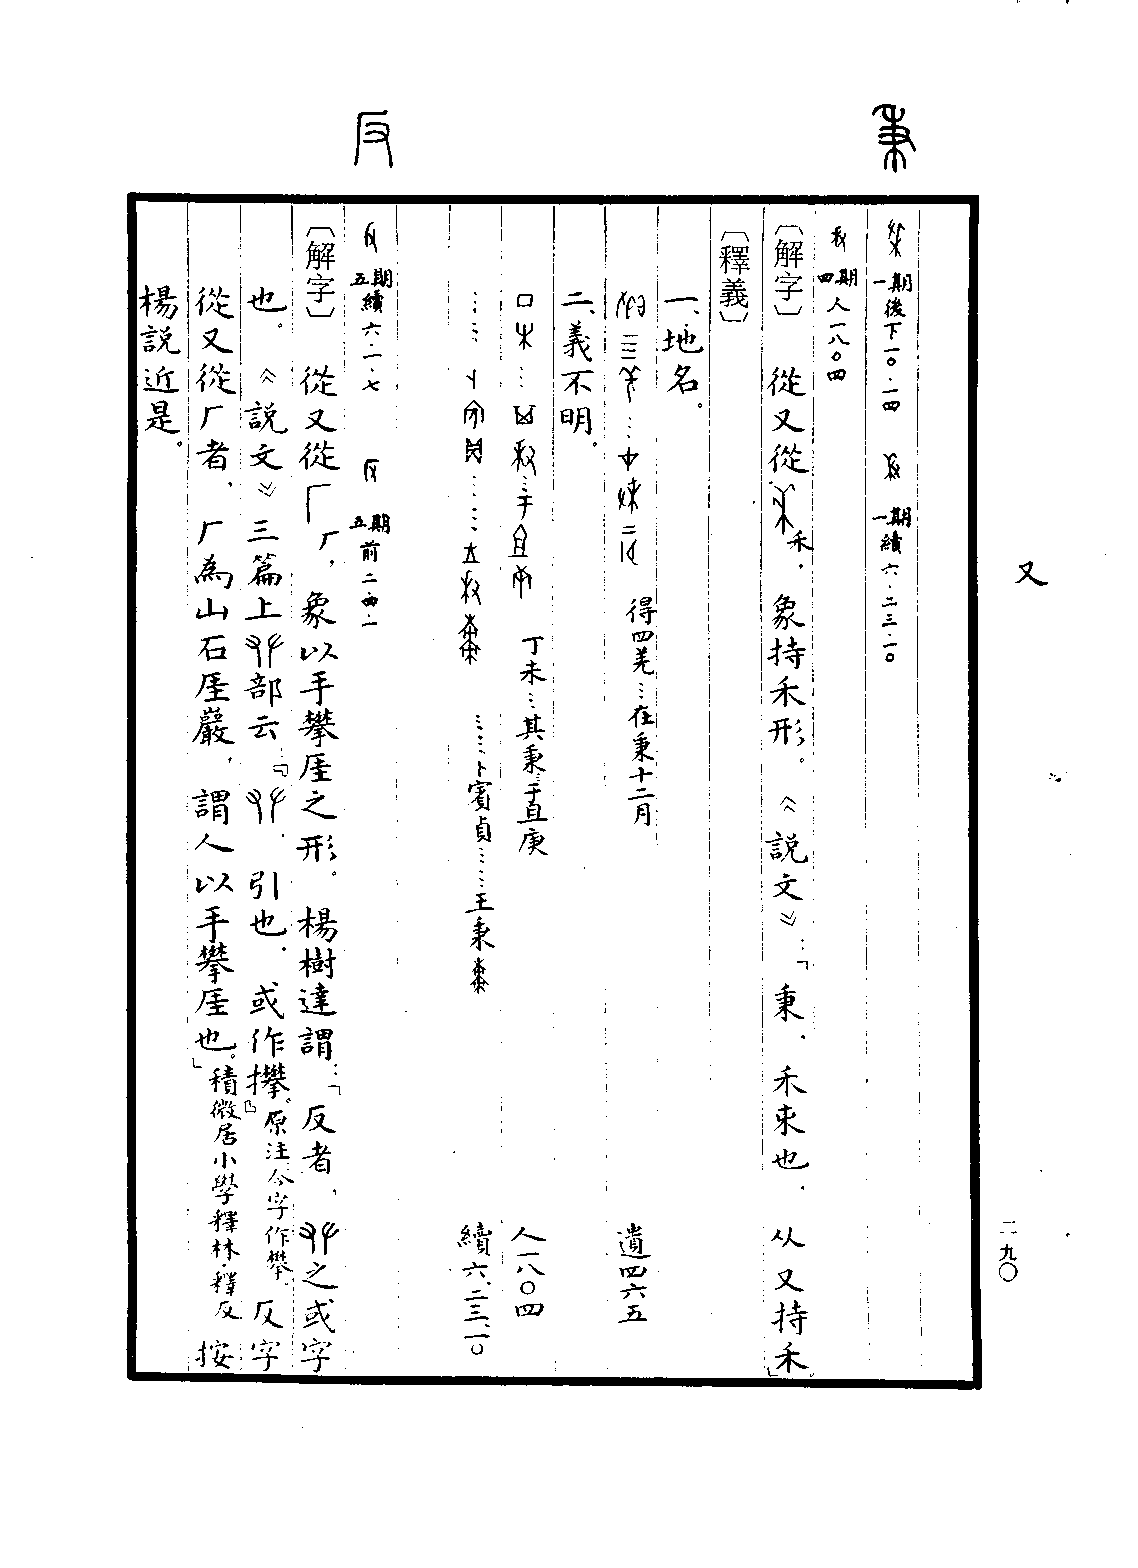 又
二九〇
秉
一期後下一〇.一四　一期續六.二三.一〇
四期人一八〇四
〔解字〕 從又從禾，象持禾形。《說文》：「秉，禾束也。从又持禾。」
〔釋義〕
一、地名。
得四羌…在秉十二月 遺四六五
二、義不明。
丁未…其秉…于宜庚 人一八〇四
……卜賓貞……王秉 續六.二三.一〇
反
五期續六.一.七　五期前二.四.一
〔解字〕 從又從厂，象以手攀厓之形。楊樹達謂：「反者，𠬜之或字
也。《說文》三篇上𠬜部云：『𠬜，引也。或作攀。』原注今字作攀。反字
從又從厂者，厂為山石厓巖，謂人以手攀厓也。」積微居小學釋林.釋反 按
楊說近是。